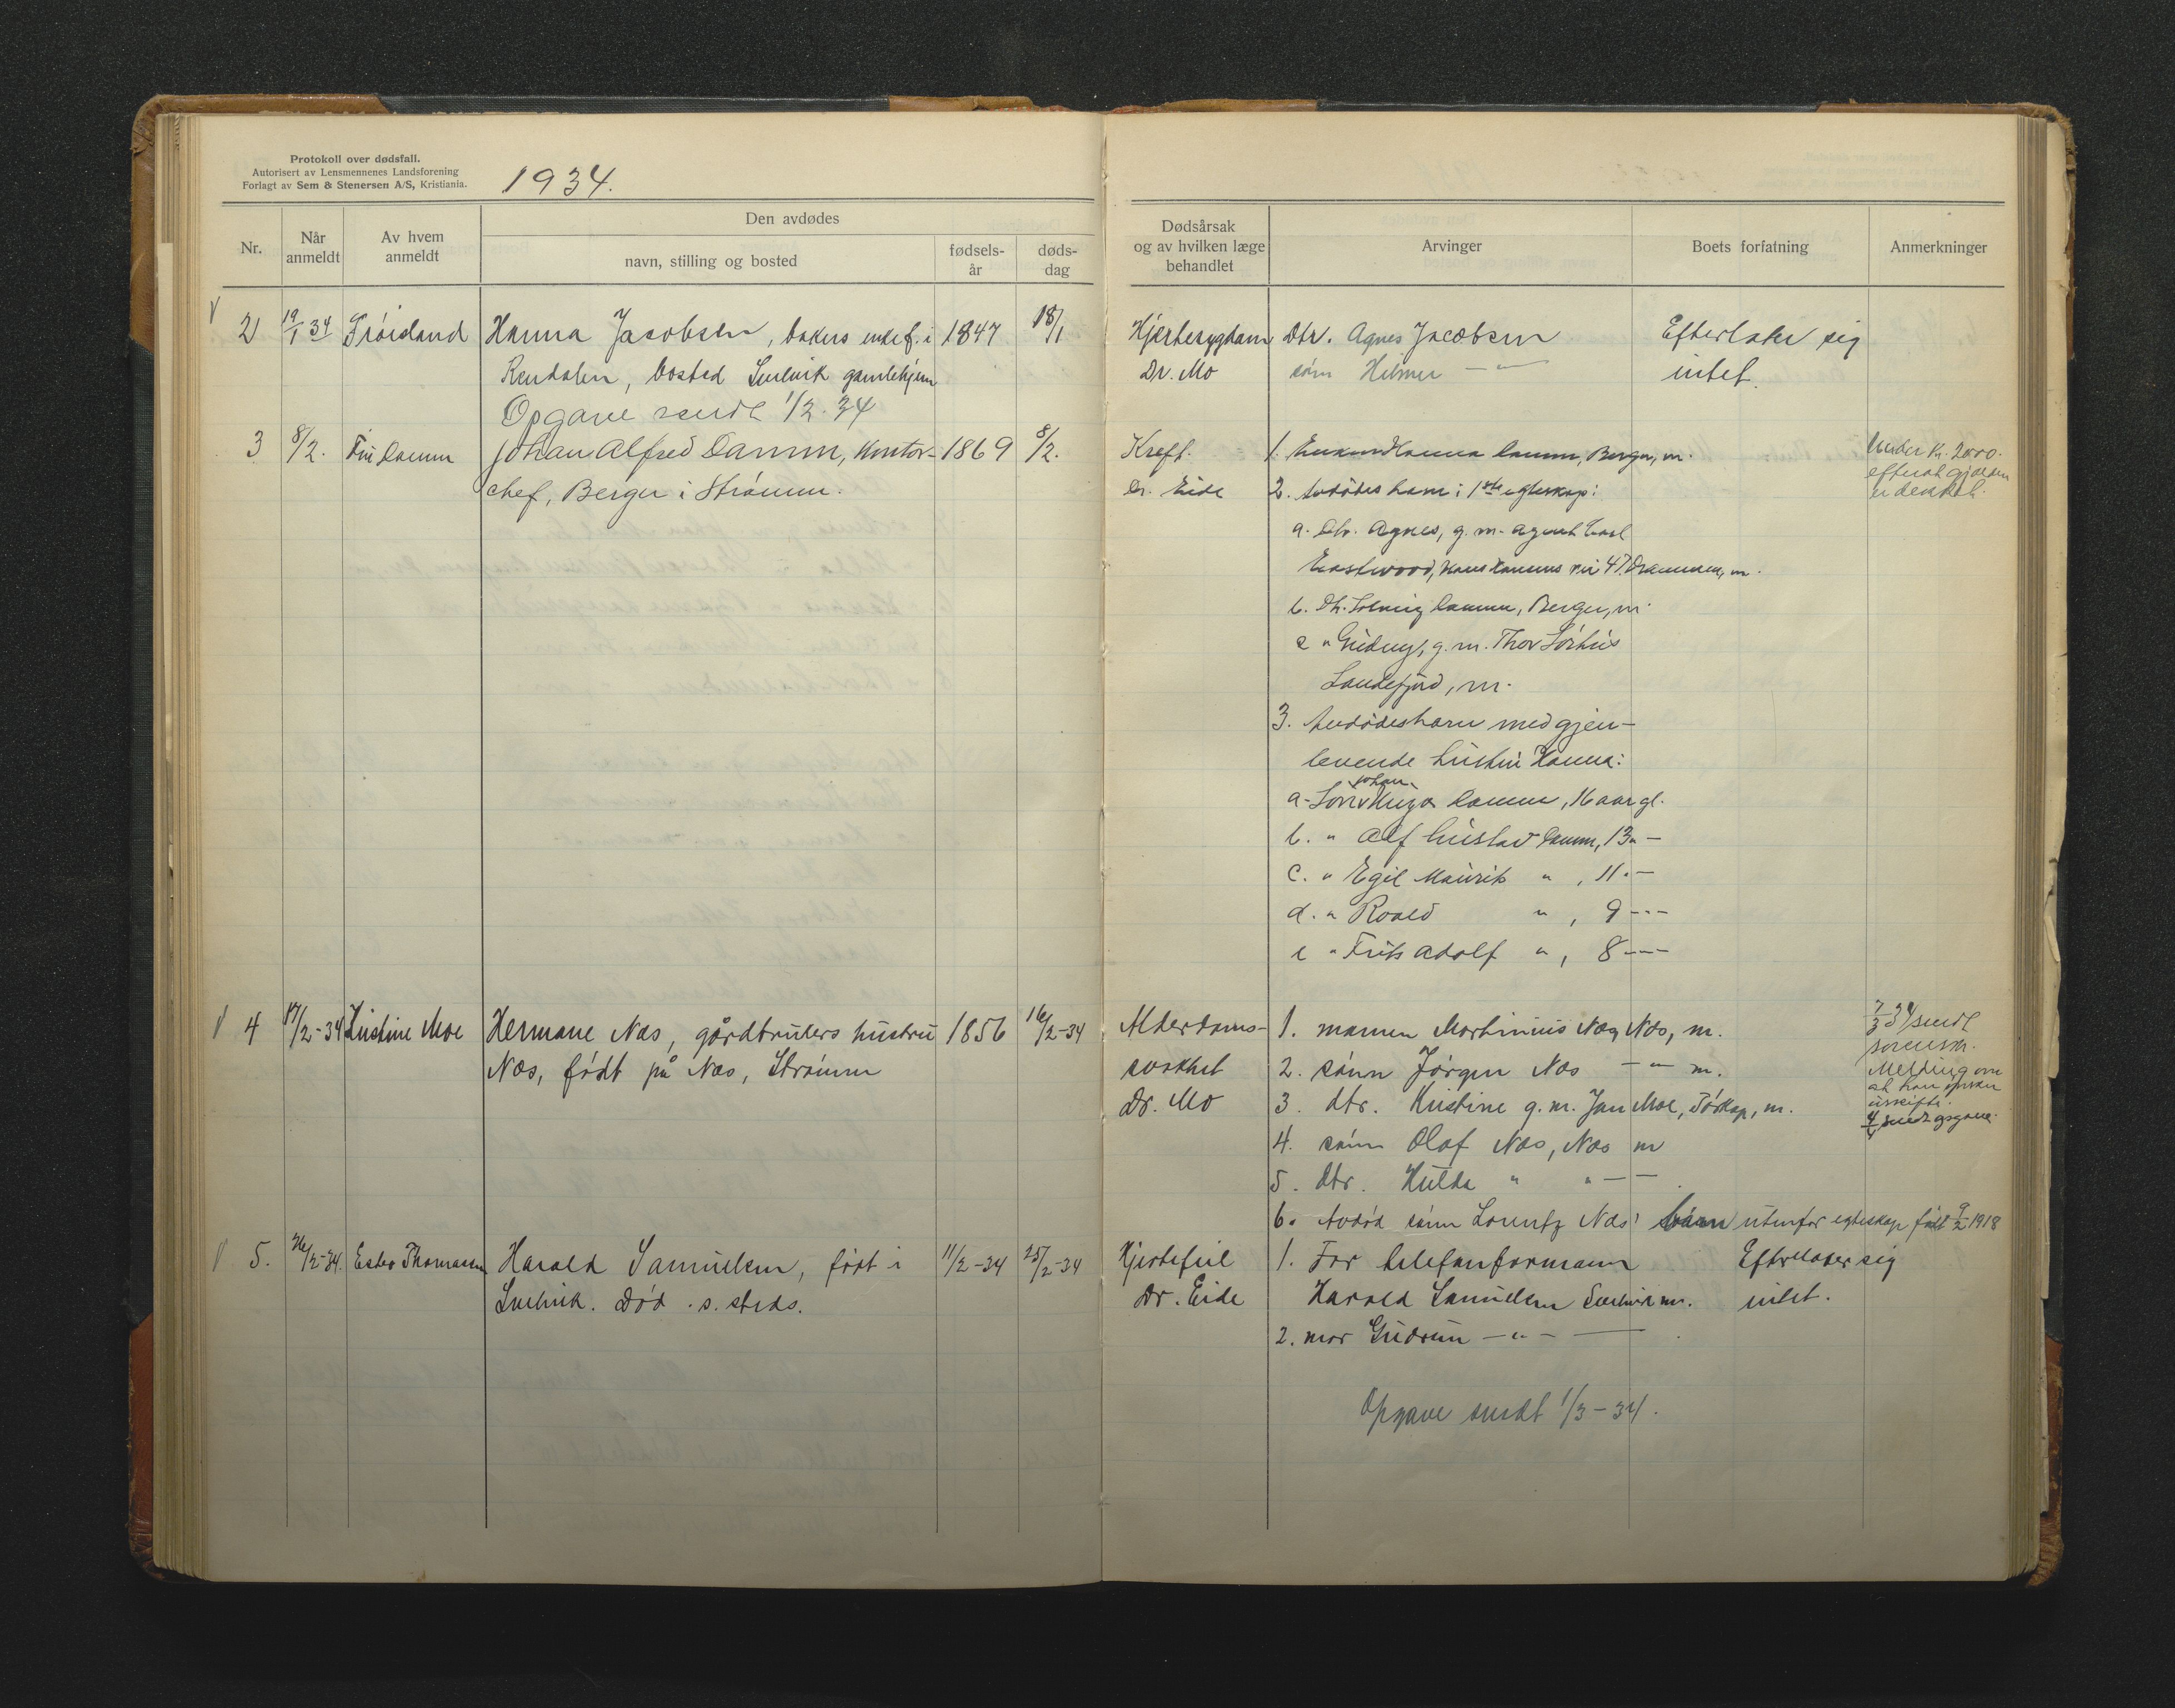 Protokoll over dødsfall.
Autorisert av Lensmennenes Landsforening
Forlagt av Sem & Stenersen A/S, Kristiania.
1934.
Nr.
Når anmeldt
Av hvem anmeldt
Den avdødes
navn, stilling og bosted
fødsels-år
døds-dag
Dødsårsak og av hvilken læge behandlet
Arvinger
Boets forfatning
Anmerkninger
2 19/1 34 Hanna Jacobsen, bakers enke f. i 1847 18/1
bosted Svelvik gamlehjem
Opgave sendt 1/2-34
Hjertesygdom
Dr. Mo
Dtr. Agnes Jacobsen
sønn Hilmer — " —
Efterlater sig
intet.
3 8/2. Damm Johan Alfred Damm, kontor- 1869 8/2.
chef, Berger i Strømm.
Kreft.
Dr. Eide
1. Enken Hanna Damm, Berger, m.
2. Avdødes barn i 1ste egteskap:
a. Dtr. Agnes, g. m. agent Carl
Eastwood, Hans Hansens vei 47, Drammen, m.
b. Dtr. Solveig Damm, Berger, m.
c " Gudny, g. m. Thor Sørhus
Sandefjord, m.
3. Avdødes barn med gjen-
levende hustru Hanna:
a. Sønn Johan Hugo Damm, 16 aar gl.
b. " Alf Gustav Damm, 13 " —
c. " Egil Maurits " , 11 " —
d. " Roald " , 9 " —
e " Frits Adolf " , 8 " —
Under kr. 2000.
efterat gjælden
er dekket.
4 17/2-34 Kristine Moe Hermane Næs, gårdbrukers hustru 1856 16/2-34
Næs, født på Næs, Strømm
Alderdoms-
svakhet
Dr. Mo
1. mannen Martinius Næs, Næs, m.
2. sønn Jørgen Næs — " — m.
3. dtr. Kristine g. m. Jan Moe, m.
4. sønn Olaf Næs, Næs m
5. dtr. Hulda " " — —
6. Avdød sønn Lorentz Næs' barn utenfor egteskap født 9/2 1918
7/3 34 sendt
sorenskr.
Melding om
at han ønsker
uskifte.
sendt opgave.
5. 26/2-34. Ester Thomassen Harald Samuelsen, født i 11/2-34 25/2-34
Svelvik. Død s. steds.
Hjertefeil
Dr. Eide
1. Far telefonformann
Harald Samuelsen Svelvik m.
2. mor Gudrun — " — —
Efterlater sig
intet.
Opgave sendt 1/3-34.